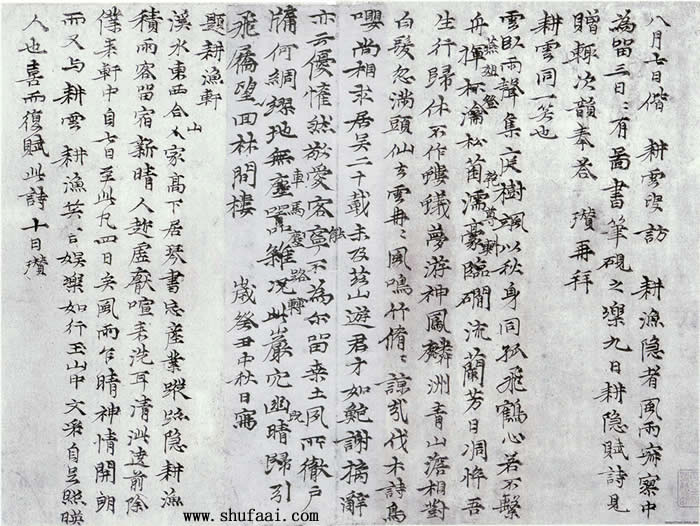 八月七日偕　耕雲叟訪　耕漁隐者風雨寂寥中
為留三日〻有圖書筆硯之樂九日耕隐賦詩見
贈輙次韻奉答　瓚再拜
耕雲同一笑也
雲臥雨聲集庭樹颯以秋身同孤飛鶴心若不繫
舟禪林瀹松菌濡豪臨磵流蘭芳日凋悴吾
生行歸休不作螻蟻夢游神鳳麟洲青山澹相對
白髮忽滿頭仙去雲冉〻風鳴竹脩〻諒哉伐木詩鳥
嚶尚相求居吳二十載未及茲山遊君才如鮑謝摛辭
亦云優惟然敬愛客寧不為尔留桑土夙所徹戶
牖何綢繆地無塵囂雜況此巖穴幽晴歸引
車馬塵
路轉
飛屩望四林間樓　歲癸丑中秋日寫
題耕漁軒
溪水東西合人家高下居琴書忘產業蹤跡隐耕漁
山
積雨容留宿新晴人趁虛厭喧來洗耳清泚遶前除
僕來軒中自七日至此凡四日矣風雨乍晴神情開朗
而又與耕雲　耕漁笑言娛樂如行玉山中文采自足照暎
人也喜而復賦此詩十日瓚
www.shufaai.com